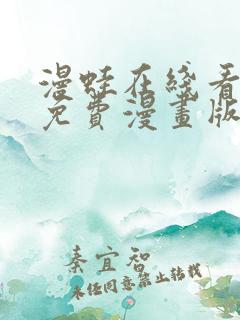 漫蛙在线看
免費漫畫版
秦宜智
未经同意禁止转载